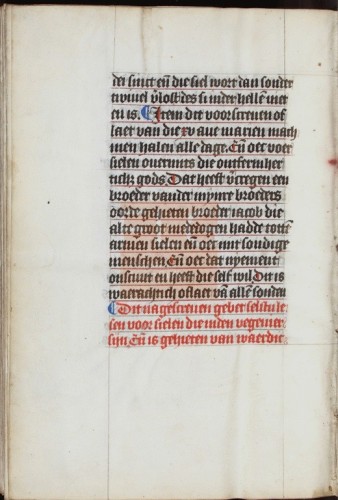 der smet eñ die siel wort dan sonder
twiuel v̄lost des si inder hellē niet
en is. Item dit voorscreuen of
laet van die xv aue marien mach
men halen alle dage. Eñ oec voer
sielen ouermits die ontfermher
ticħ gods. Dat heeft v̄cregen een
broeder vander mynre broeders
oorde geħieten broeder iacob die
alte groot mededogen hadde totten
armen sielen eñ oec mit sondige
menschen. Eñ oec dat nyement
en heeft die self wil Dit is
waerachtich oflaet vā allē sonden
Dit nagescreuen gebet sel
sen voor sielen die inden vegeuier
sijn Eñ is geħieten van waerdie